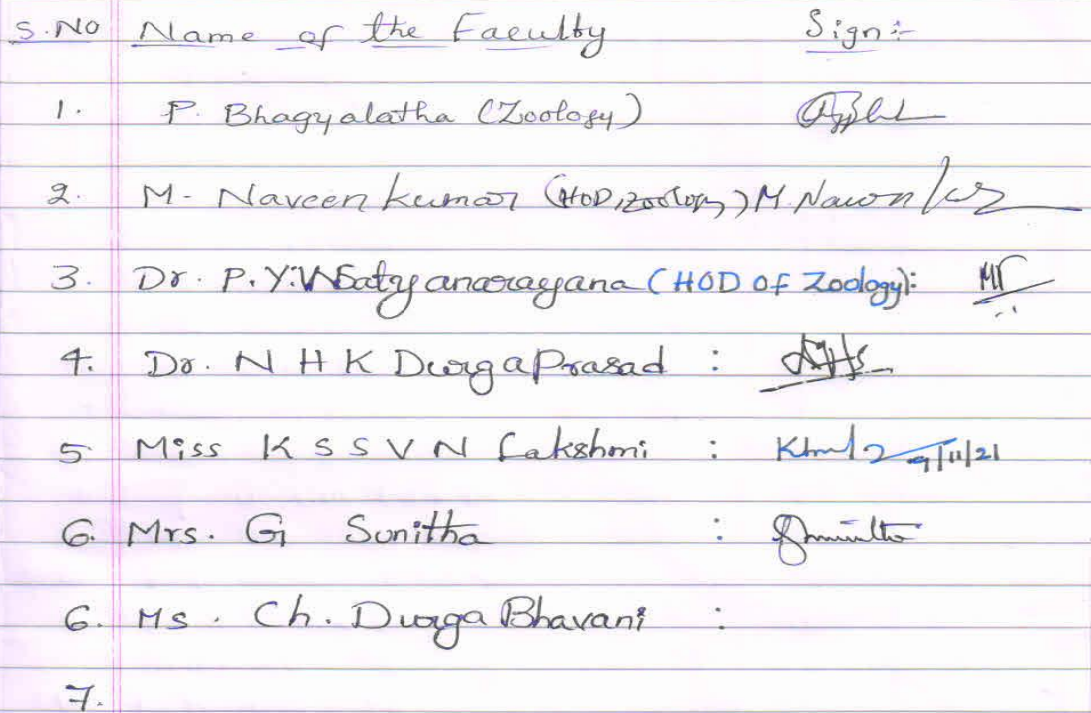 S.No Name of the Faculty Sign:-
1. P. Bhagyalatha (Zoology)
2. M. Naveen kumar (HOD, Zoology) M. Naveen
3. Dr. P. Y. V Satyanarayana (HOD of Zoology):
4. Dr. N H K Durga Prasad :
5 Miss K S S V N Lakshmi : 9/11/21
6. Mrs. G Sunitha : Sunitha
6. Ms. Ch. Durga Bhavani :
7.